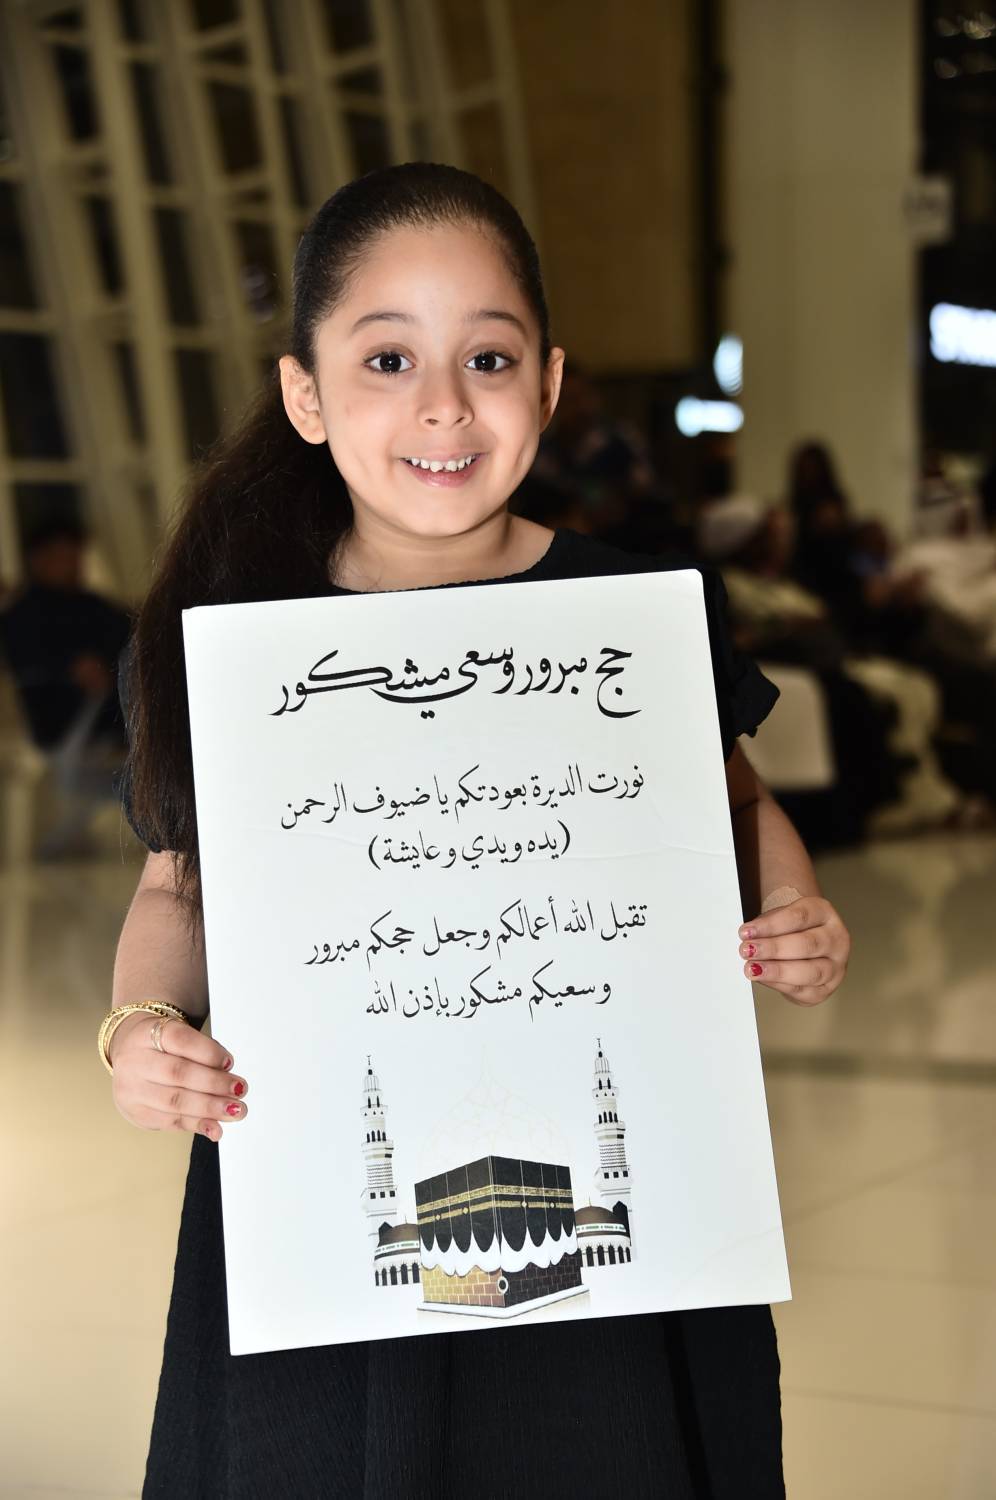 حج مبرور وسعي مشكور
نورت الديرة بعودتكم يا ضيوف الرحمن
(يده ويدي وعايشة)
تقبل الله أعمالكم وجعل حجكم مبرور
وسعيكم مشكور بإذن الله